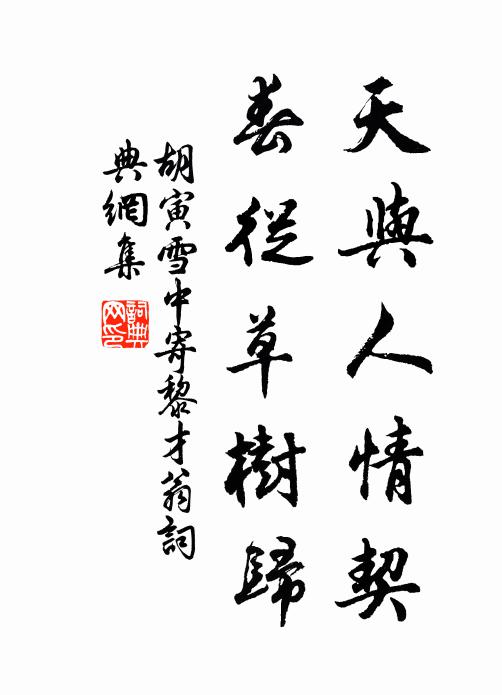 天與人情契
春從草樹歸
胡寅雪中寄黎才翁詞
典網集
詞典網印